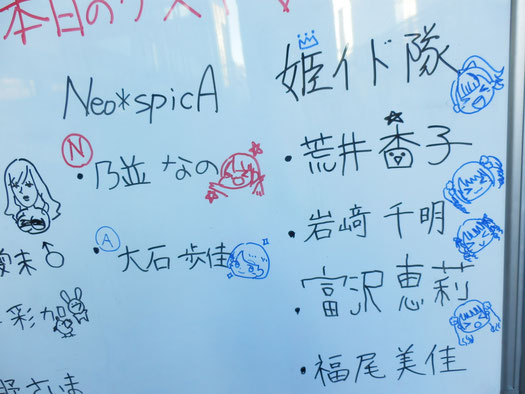 本日のゲスト
Neo*spicA
Ⓝ
・乃並 なの
Ⓐ
・大石 歩佳
姫イド隊
・荒井 杏子
・岩崎 千明
・富沢 恵莉
・福尾 美佳
末♂
彩加
野さいま